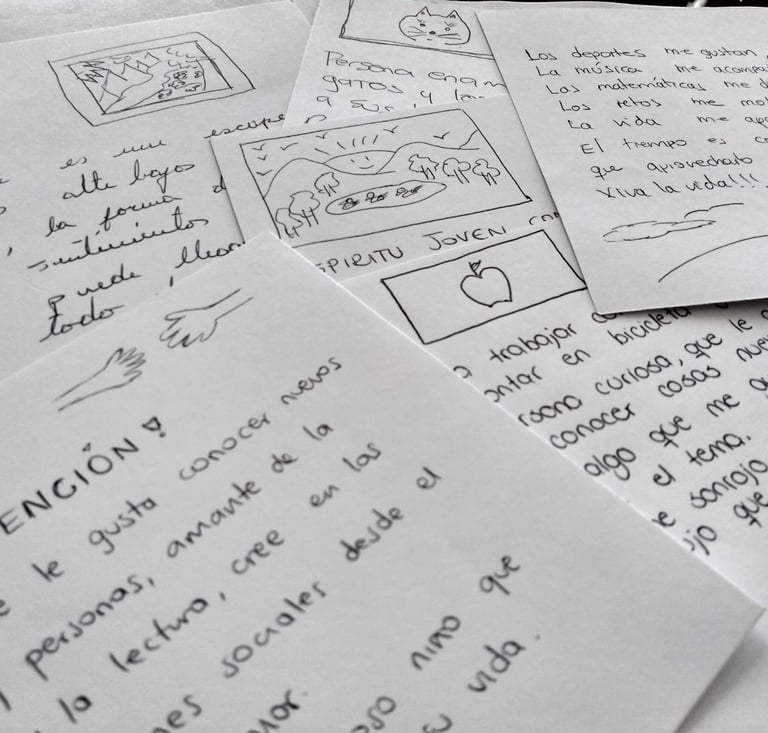 es un escape
alti bajos
la forma d
sentimientos
Puede lleva
todo
Persona enam
gatos
a sus, y la
Los deportes me gustan
La música me acompa
Las matemáticas me d
Los retos me mo
La vida me ap
El tiempo es co
que aprovecharlo
Viva la vida!!!
SPIRITU JOVEN con
a trabajar co
ontar en bicicleta
rsona curiosa, que le
conocer cosas nue
algo que me
el tema.
e sonrojo
ojo que
ENCIÓN!
e le gusta conocer nuevos
personas, amante de la
la lectura, cree en las
nes sociales desde el
mor.
oso niño que
su vida.